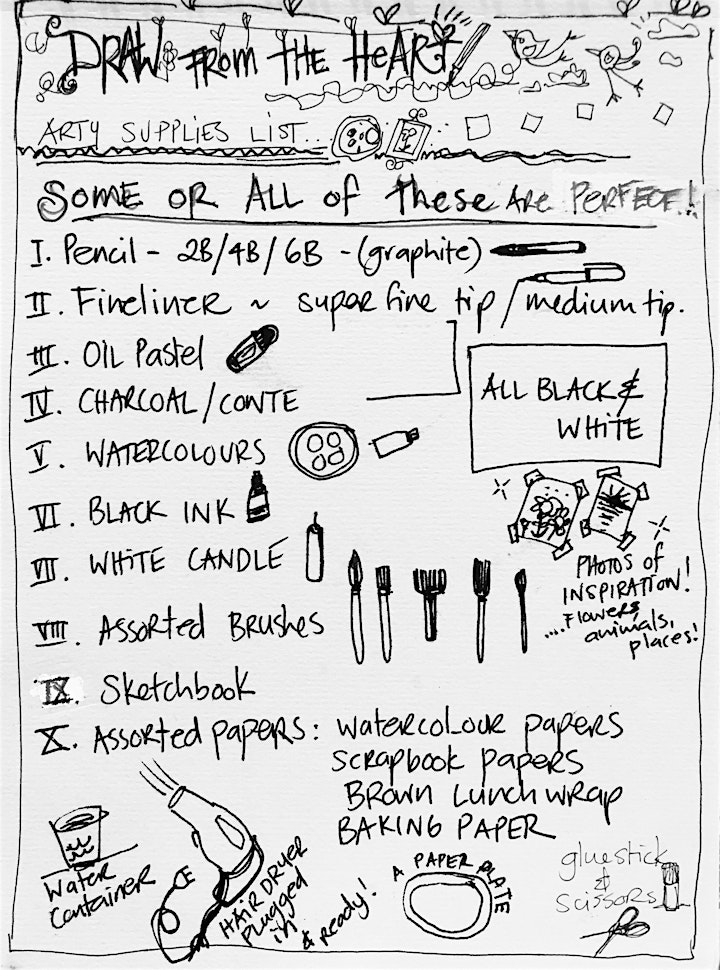 DRAW FROM THE HEART
ARTY SUPPLIES LIST...
SOME OR ALL of These ARE PERFECT!
I. Pencil - 2B/4B/6B - (graphite)
II. FINELINER ~ super fine tip / medium tip.
III. OIL Pastel
IV. CHARCOAL/CONTE
ALL BLACK &
WHITE
V. WATERCOLOURS
VI. BLACK INK
VII. WHITE CANDLE
PHOTOS of
INSPIRATION!
.... FLOWERS,
animals,
places!
VIII. ASSORTED BRUSHES
IX. Sketchbook
X. ASSORTED papers: WATERCOLOUR papers
SCRAPBOOK papers
BROWN Lunch wrap
BAKING PAPER
Water
Container
HAIR DRYER
Plugged
in
& Ready!
A PAPER PLATE
gluestick
&
scissors